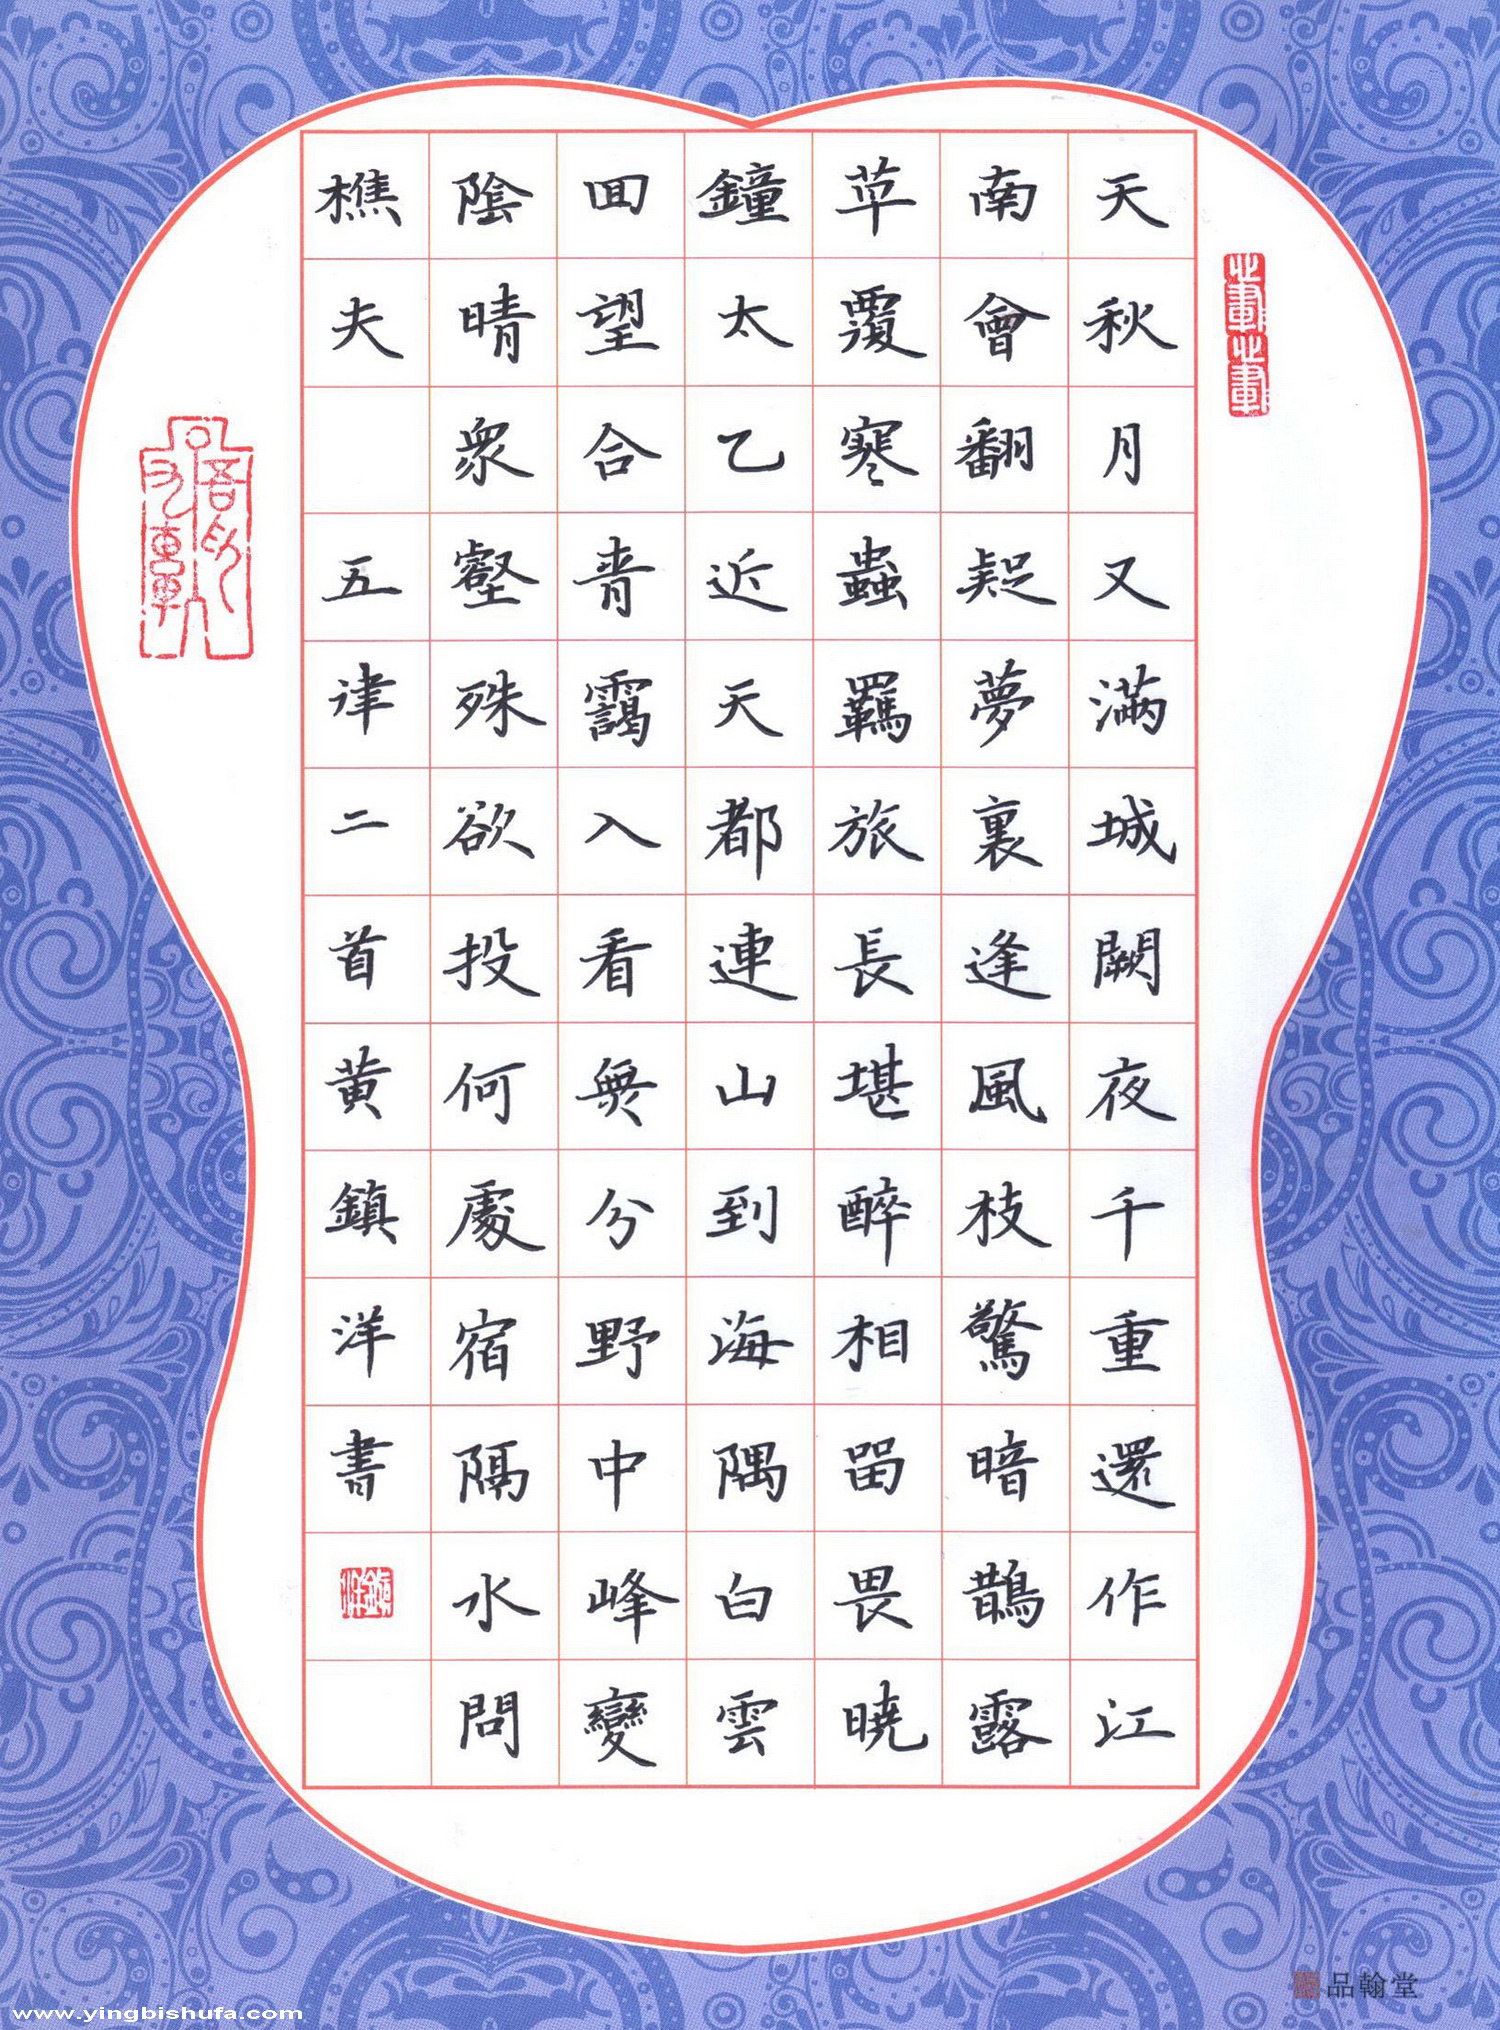 天秋月又滿城闕夜千重還作江
南會翻疑夢裏逢風枝驚暗鵲露
草覆寒蟲羈旅長堪醉相留畏曉
鐘太乙近天都連山到海隅白雲
囬望合青靄入看無分野中峰變
陰晴衆壑殊欲投何處宿隔水問
樵夫 五律二首黃鎮洋書
鎮洋
品翰堂
www.yingbishufa.com